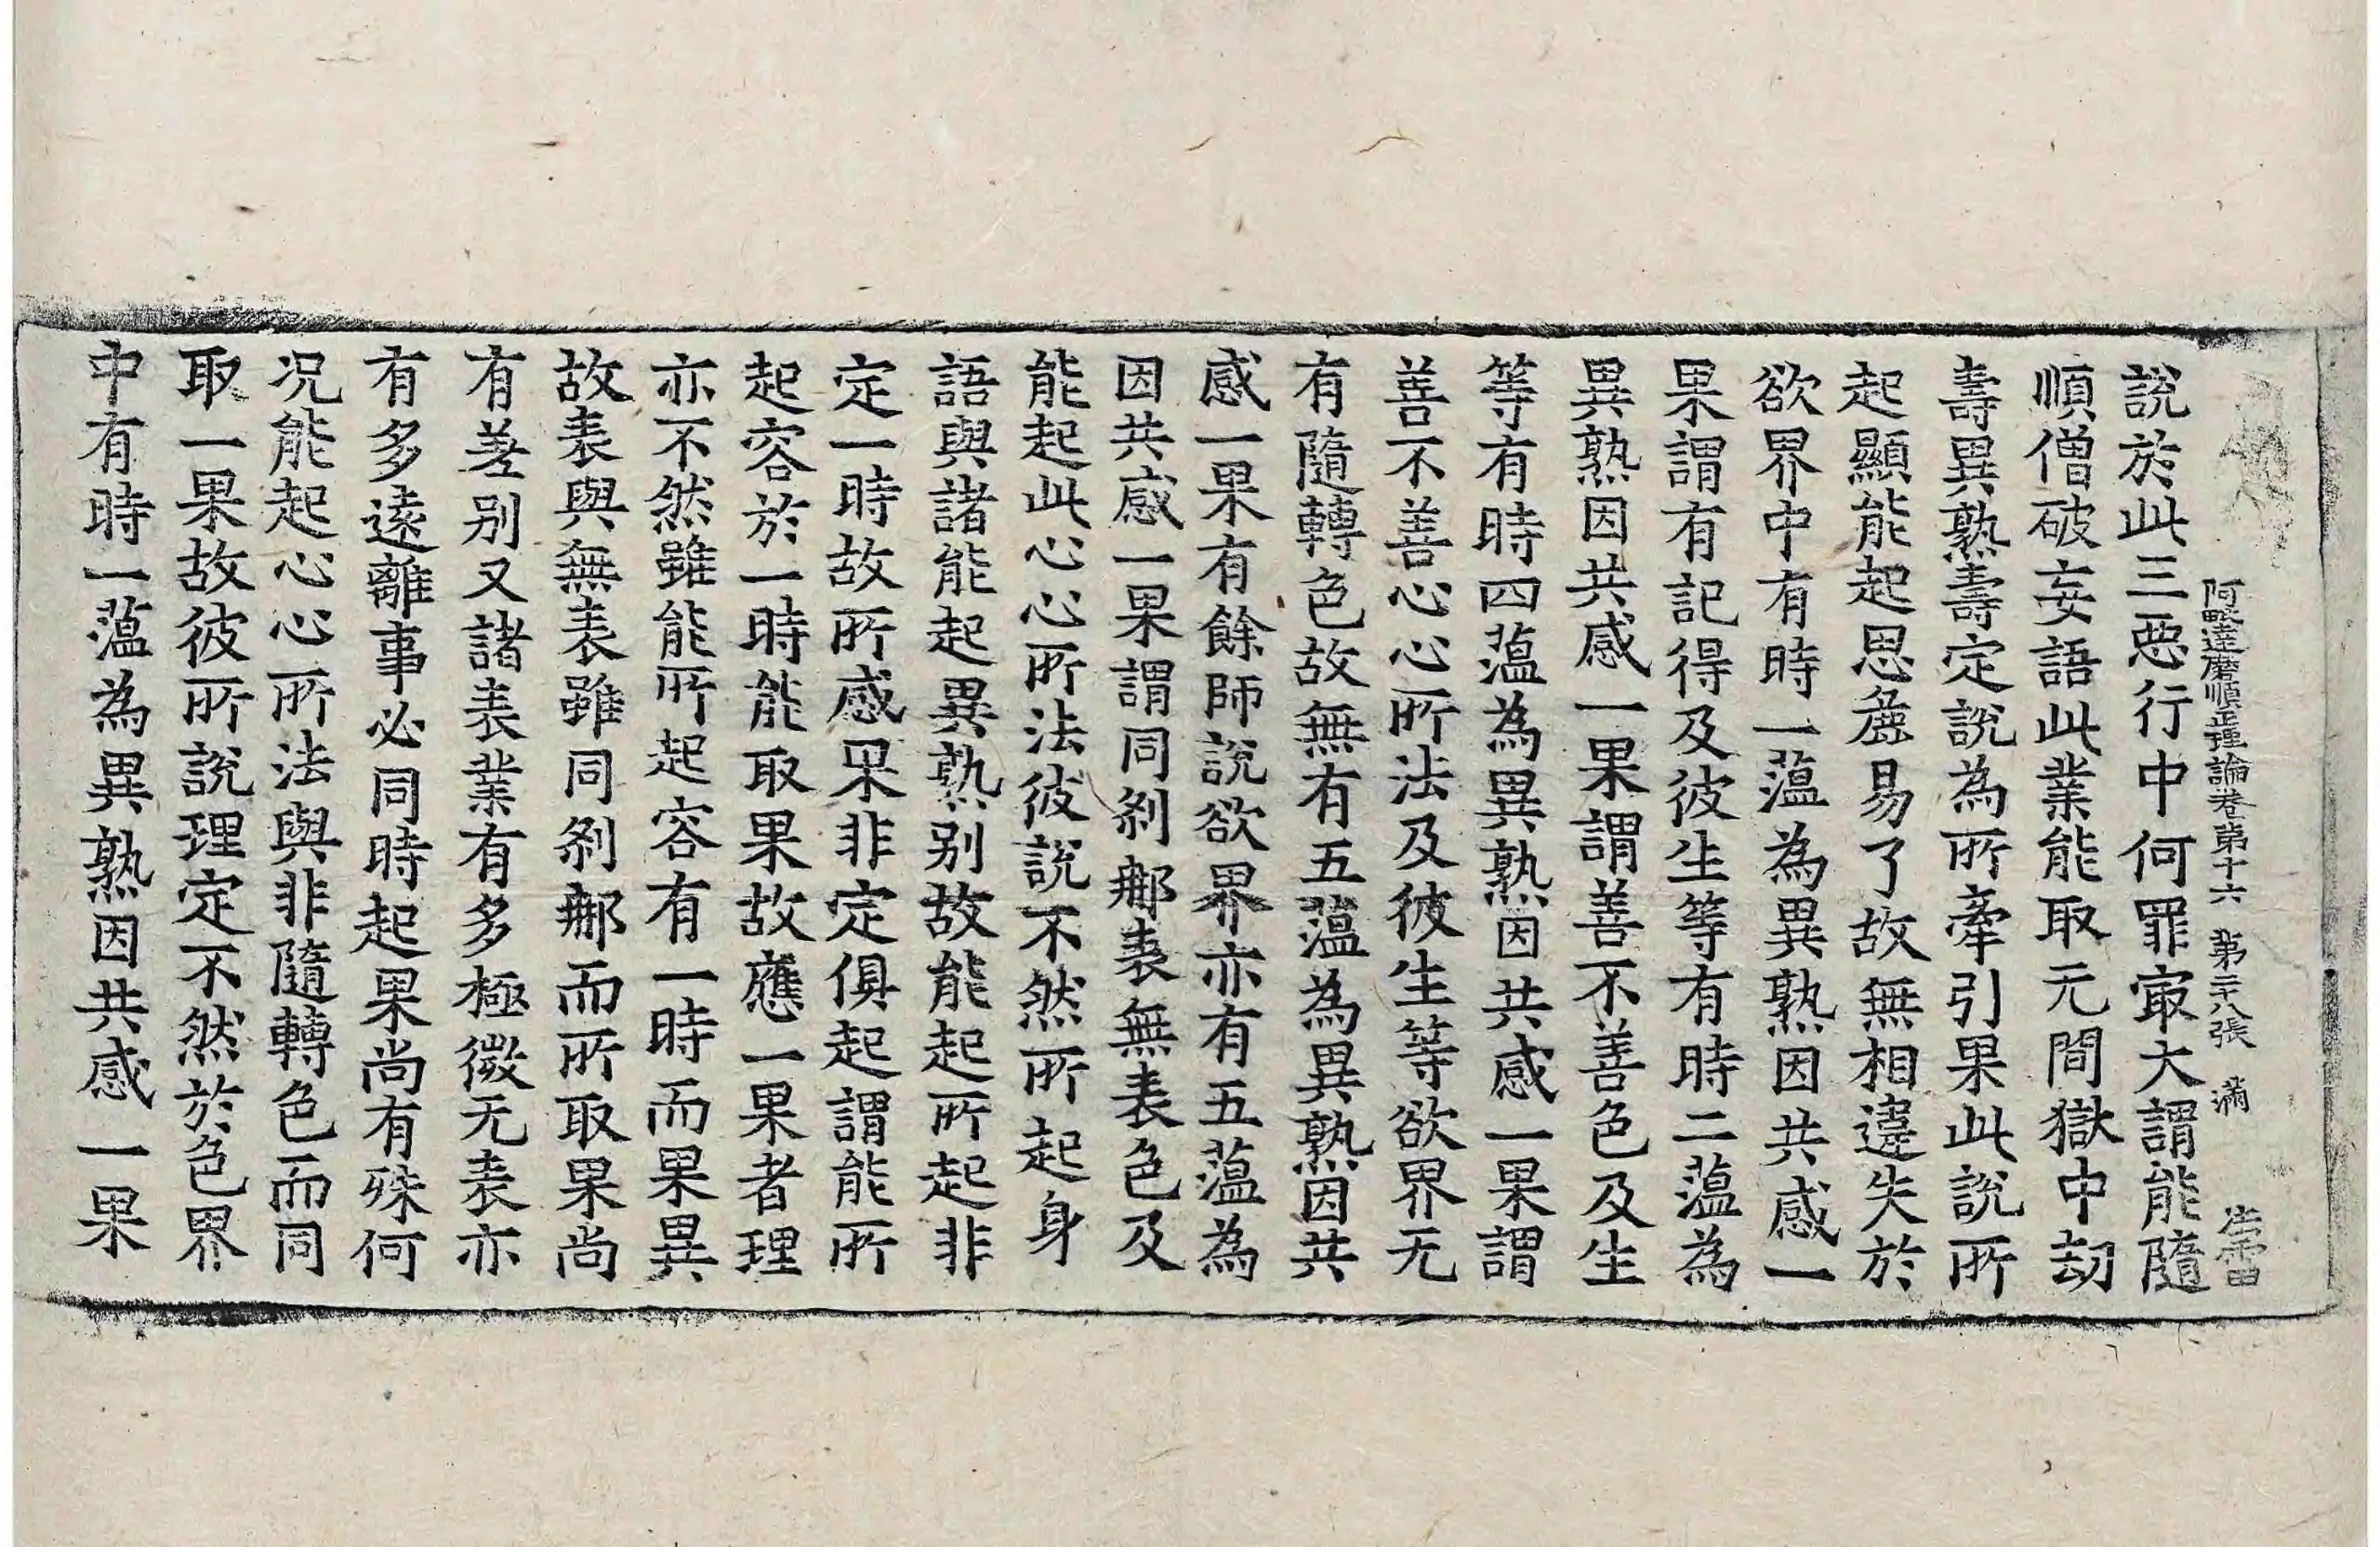 阿毗達磨順正理論卷第十六 第二十八張 滿
說於此三惡行中何罪㝡大謂能隨
順僧破妄語此業能取无間獄中劫
壽異熟壽定說為所牽引果此說所
起顯能起思麁易了故無相違失於
欲界中有時一蘊為異熟因共感一
果謂有記得及彼生等有時二蘊為
異熟因共感一果謂善不善色及生
等有時四蘊為異熟因共感一果謂
善不善心心所法及彼生等欲界无
有隨轉色故無有五蘊為異熟因共
感一果有餘師說欲界亦有五蘊為
因共感一果謂同剎那表無表色及
能起此心心所法彼說不然所起身
語與諸能起異熟別故能起所起非
定一時故所感果非定俱起謂能所
起容於一時能取果故應一果者理
亦不然雖能所起容有一時而果異
故表與無表雖同剎那而所取果尚
有差別又諸表業有多極微无表亦
有多遠離事必同時起果尚有殊何
况能起心心所法與非隨轉色而同
取一果故彼所說理定不然於色界
中有時一蘊為異熟因共感一果